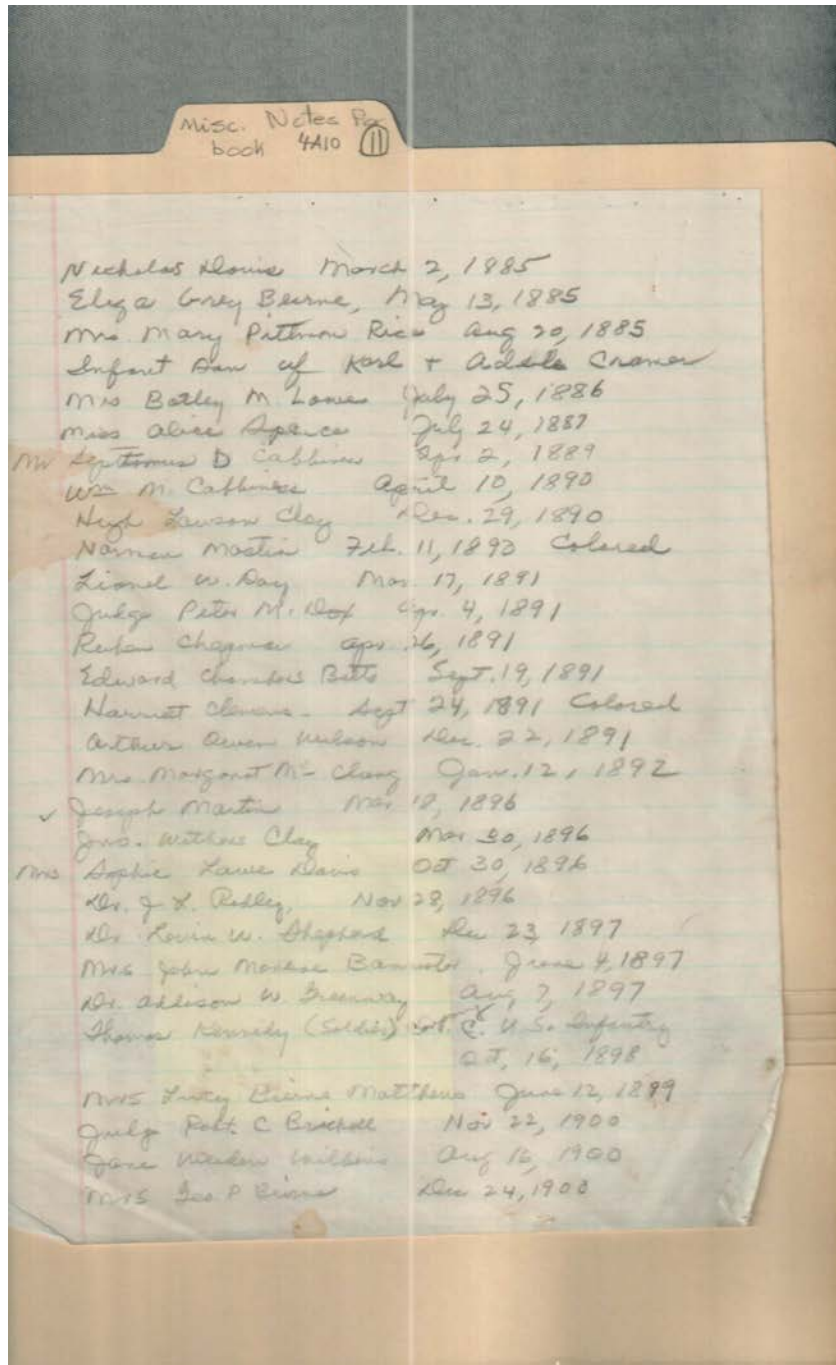 Misc. Notes Pg
book 4A10 11
Nicholas Davis March 2, 1885
Eliza Grey Beirne, May 13, 1885
Mrs. Mary Pittman Rice Aug 20, 1885
Infant son of Karl + Addle Cramer
Mrs Batley M. Lowe July 25, 1886
Miss Alice Spence July 24, 1887
Mr Septomus D Cabbiness Apr 2, 1889
Wm M. Cabbiness April 10, 1890
Hugh Lawson Clay Dec. 29, 1890
Norman Mastin Feb. 11, 1893 Colored
Lionel W. Day Mar. 17, 1891
Judge Peter M. Dox Apr. 4, 1891
Reuben Chapman Apr. 26, 1891
Edward Chambers Betts Sept. 19, 1891
Harriet Clemens. Sept 24, 1891 Colored
Arthur Owen Wilson Dec. 22, 1891
Mrs. Margaret Mc Clung Jan. 12, 1892
✓ Joseph Martin Mar 18, 1896
Jno. Withers Clay Mar 30, 1896
Mrs Sophie Lowe Davis Oct 30, 1896
Dr. J. L. Ridley, Nov 28, 1896
Dr. Levin W. Shepherd Dec 23, 1897
Mrs John Monroe Bannister. June 4, 1897
Dr. Addison W. Greenway Aug, 7, 1897
Thomas Kennedy (Soldier) C. U. S. Infantry
Oct, 16, 1898
Mrs Lucy Bierne Matthews June 12, 1899
Judge Robt. C Brickell Nov 22, 1900
Jane Weeden Aug 16, 1900
Mrs Geo P Bierne Dec 24, 1900